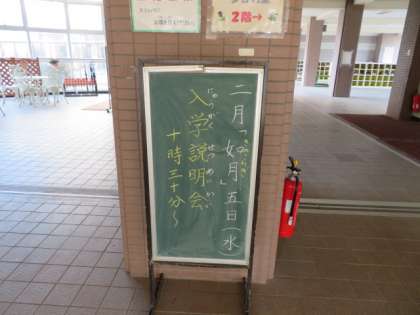 2階→
二月「如月」五日(水)
きさらぎ
入学説明会
にゅうがく せつめいかい
十時三十分〜